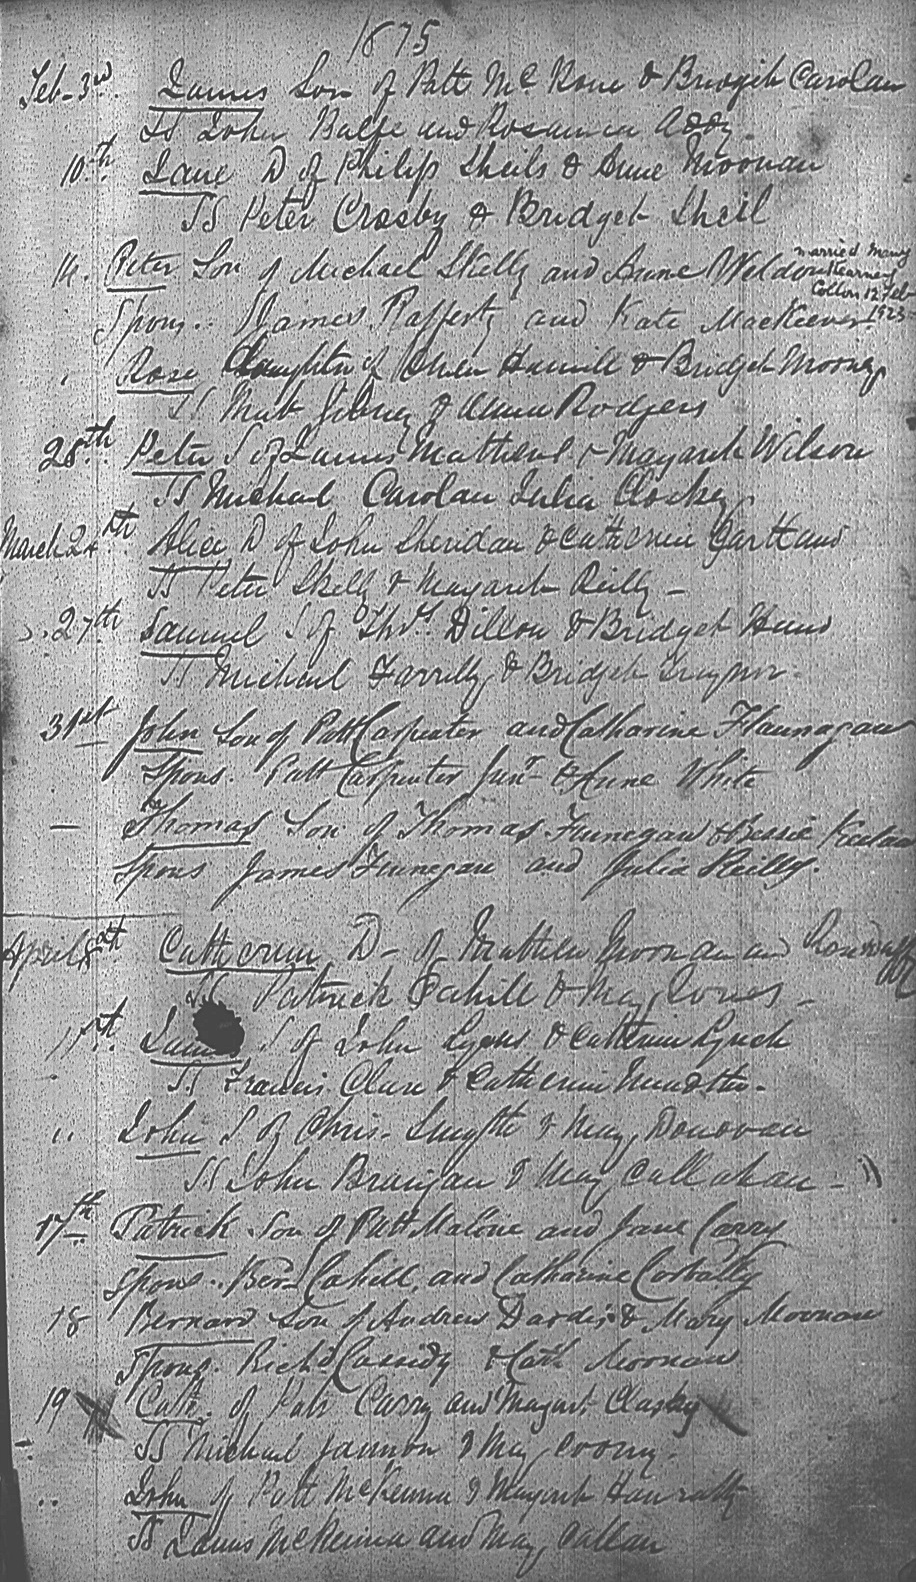 1875
Feb. 3rd. James Son of Patt Mc Kone & Bridget Carolan
SS John Balfe and Rosanna Addy.
10th. Jane D of Philip Sheils & Anne Moonan
SS Peter Crosby & Bridget Sheil
14. Peter Son of Michael Skelly and Anne Weldon
married Mary
Kearney
Collon 12 Feb
1923
Spons.. James Rafferty and Kate MacKeever
, Rose Daughter of Owen Hamill & Bridget Mooney
SS Matt Gibney & Anne Rodgers
28th. Peter S of James Mathews & Margaret Wilson
SS Michael Carolan Julia Clarkey
March 24th Alice D of John Sheridan & Catherine Gartland
SS Peter Skelly & Margaret Reilly -
27th Samuel S of Thos. Dillon & Bridget
SS Michael Farrelly & Bridget Traynor.
31st John Son of Patt Carpenter and Catharine Flannagan
Spons. Patt Carpenter Junr & Anne White
— Thomas Son of Thomas Finnegan & Bessie
Spons James Finnegan and Julia Reilly.
April 8th Catherine D- of Matthew Moonan and
SS Patrick Cahill & May Jones -
11th. James S of John Lyons & Catherine Lynch
SS Francis Clare & Catherine
" John S. of Chris. Smyth & May Donovan
SS John Branigan & May Callahan -
17th Patrick Son of Patt Malone and Jane Carry
Spons.. Bern Cahill, and Catharine Corbally
18 Bernard Son of Andrew Dardis & Mary Moonan
Spons. Richd Cassidy & Cath Moonan
19 Cath. of Patt Carry and Margaret Clasky
SS Michael Gannon & May
.. John of Patt McKenna & Margaret Hanratty
SS James McKenna and May Callan